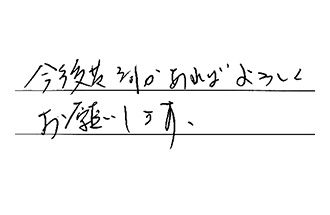 今後共何かあればよろしく
お願いします、